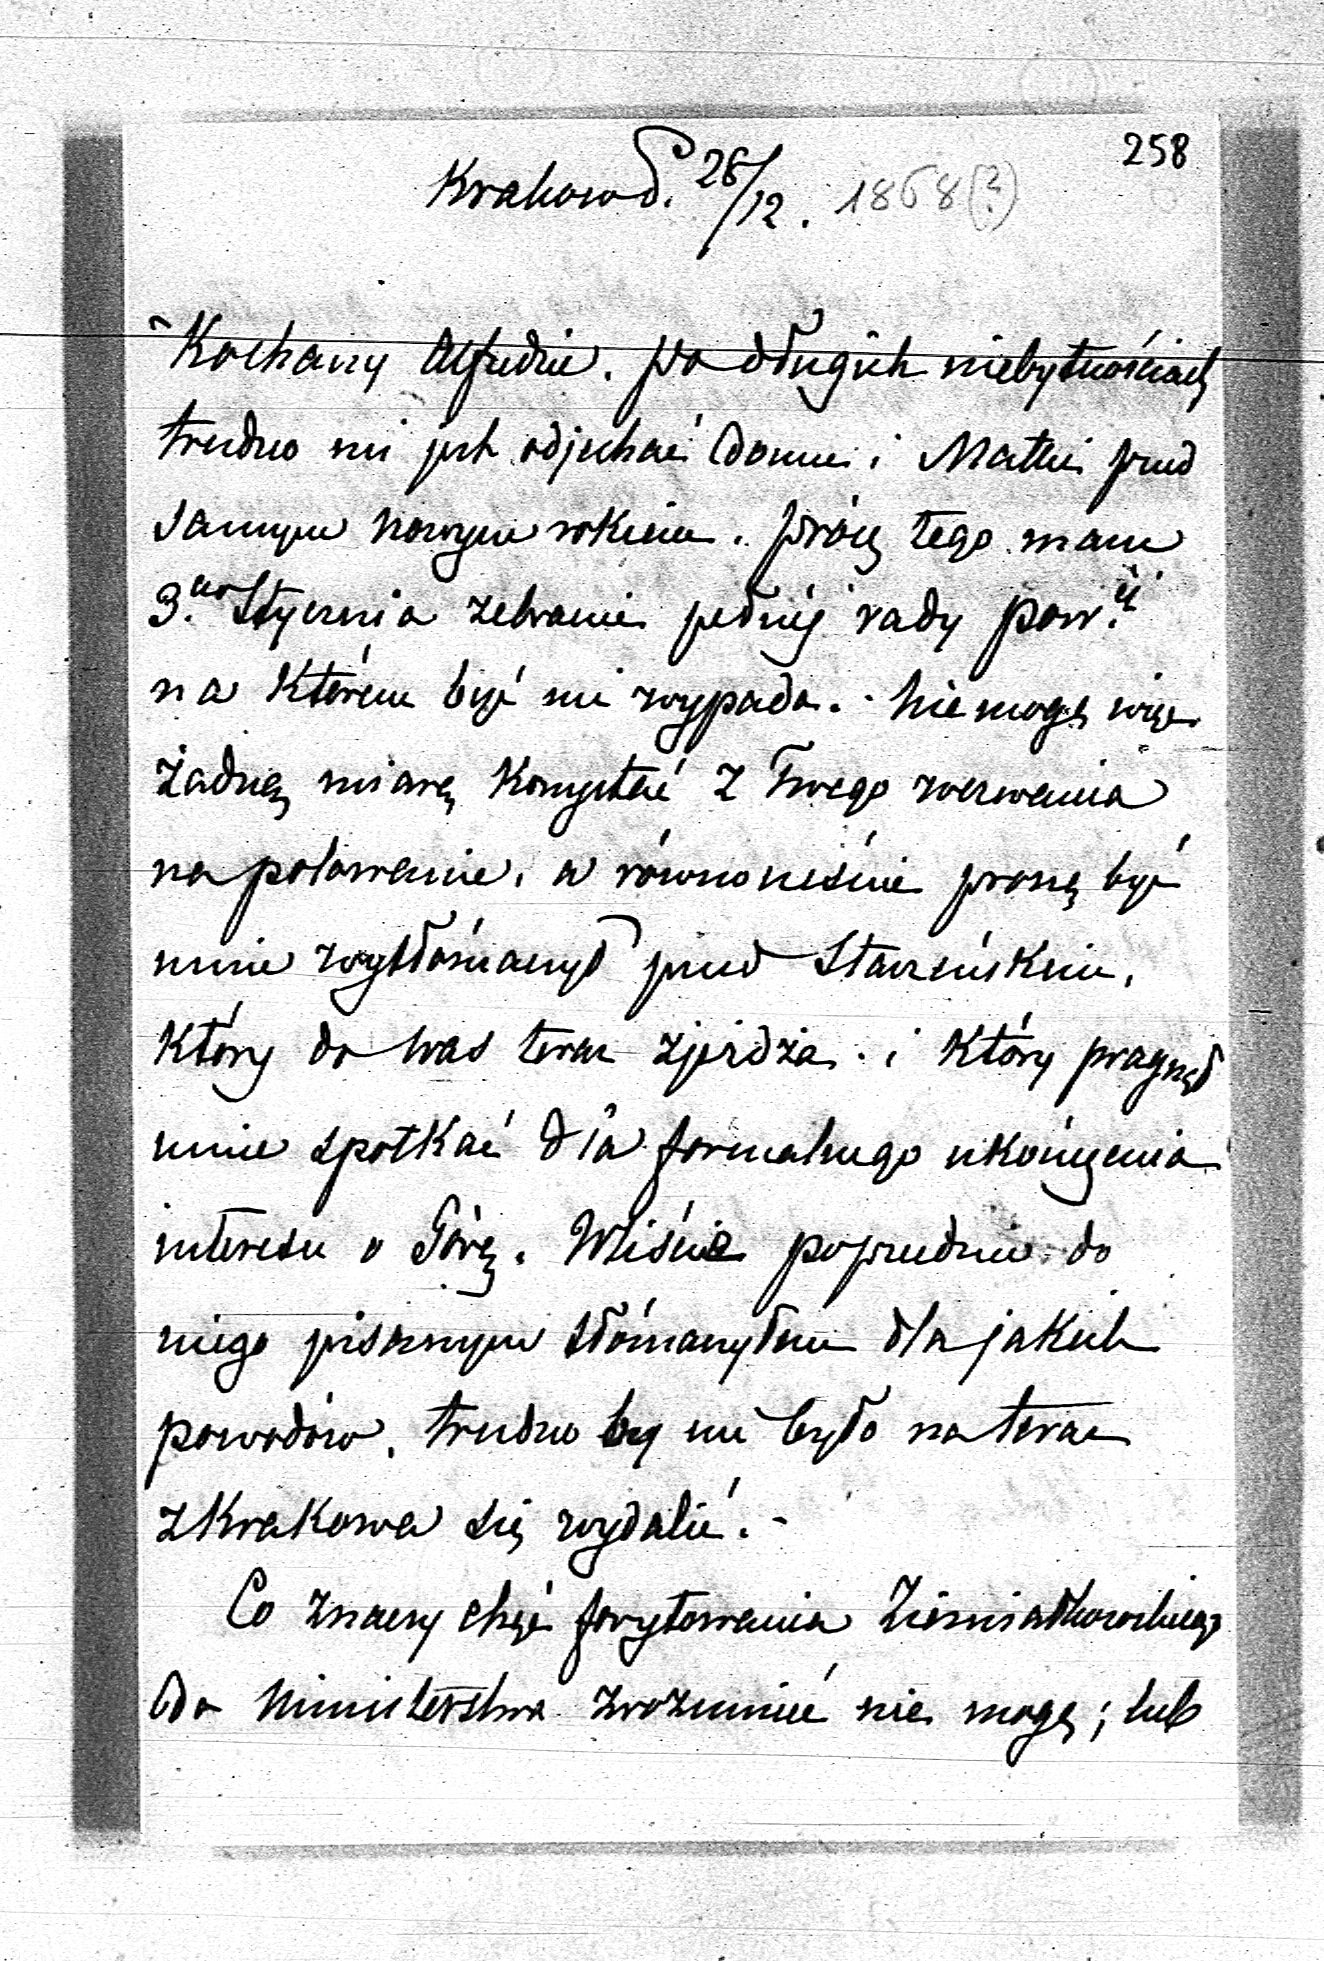 258
Kraków d. 26/12. 1868(?)
Kochany Alfredzie. po długich niebytnościach
trudno mi jest odjechać domu i Matki przed
samym nowym rokiem. prócz tego mam
3.go Stycznia zebranie pełnéj rady pow.éj
na którém być mi wypada. - Nie mogę więc
żadną miarą korzystać z Twego wezwania
na polowanie, a równocześnie proszę być
mnie wytłómaczył przed Starzeńskim,
który do was teraz zjeżdża. i który pragnął
mnie spotkać dla formalnego ukończenia
interesu o Górę. W liście poprzednio do
niego pisanym tłómaczyłem dla jakich
powodów, trudno by mi było na teraz
z Krakowa się wydalić. -
Co znaczy chęć forytowania Ziemiałkowskiego
do Ministerstwa zrozumieć nie mogę; lub